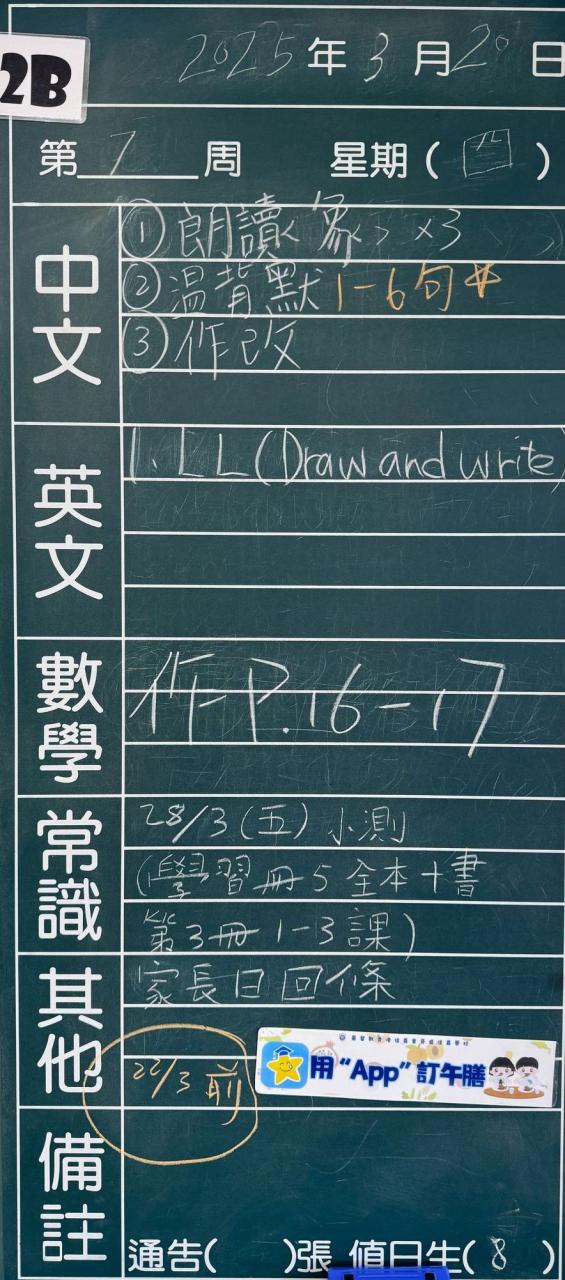 2B
2025年3月20日
第7周 星期(四)
中文
①朗讀<象> ×3
②温背默1-6句
③作改
英文
1. LL(Draw and write)
數學
作P.16-17
常識
28/3(五)小測
(學習冊5全本+書
第3冊1-3課)
其他
家長日回條
22/3前
用“App”訂午膳
備註
通告( )張 值日生(8)